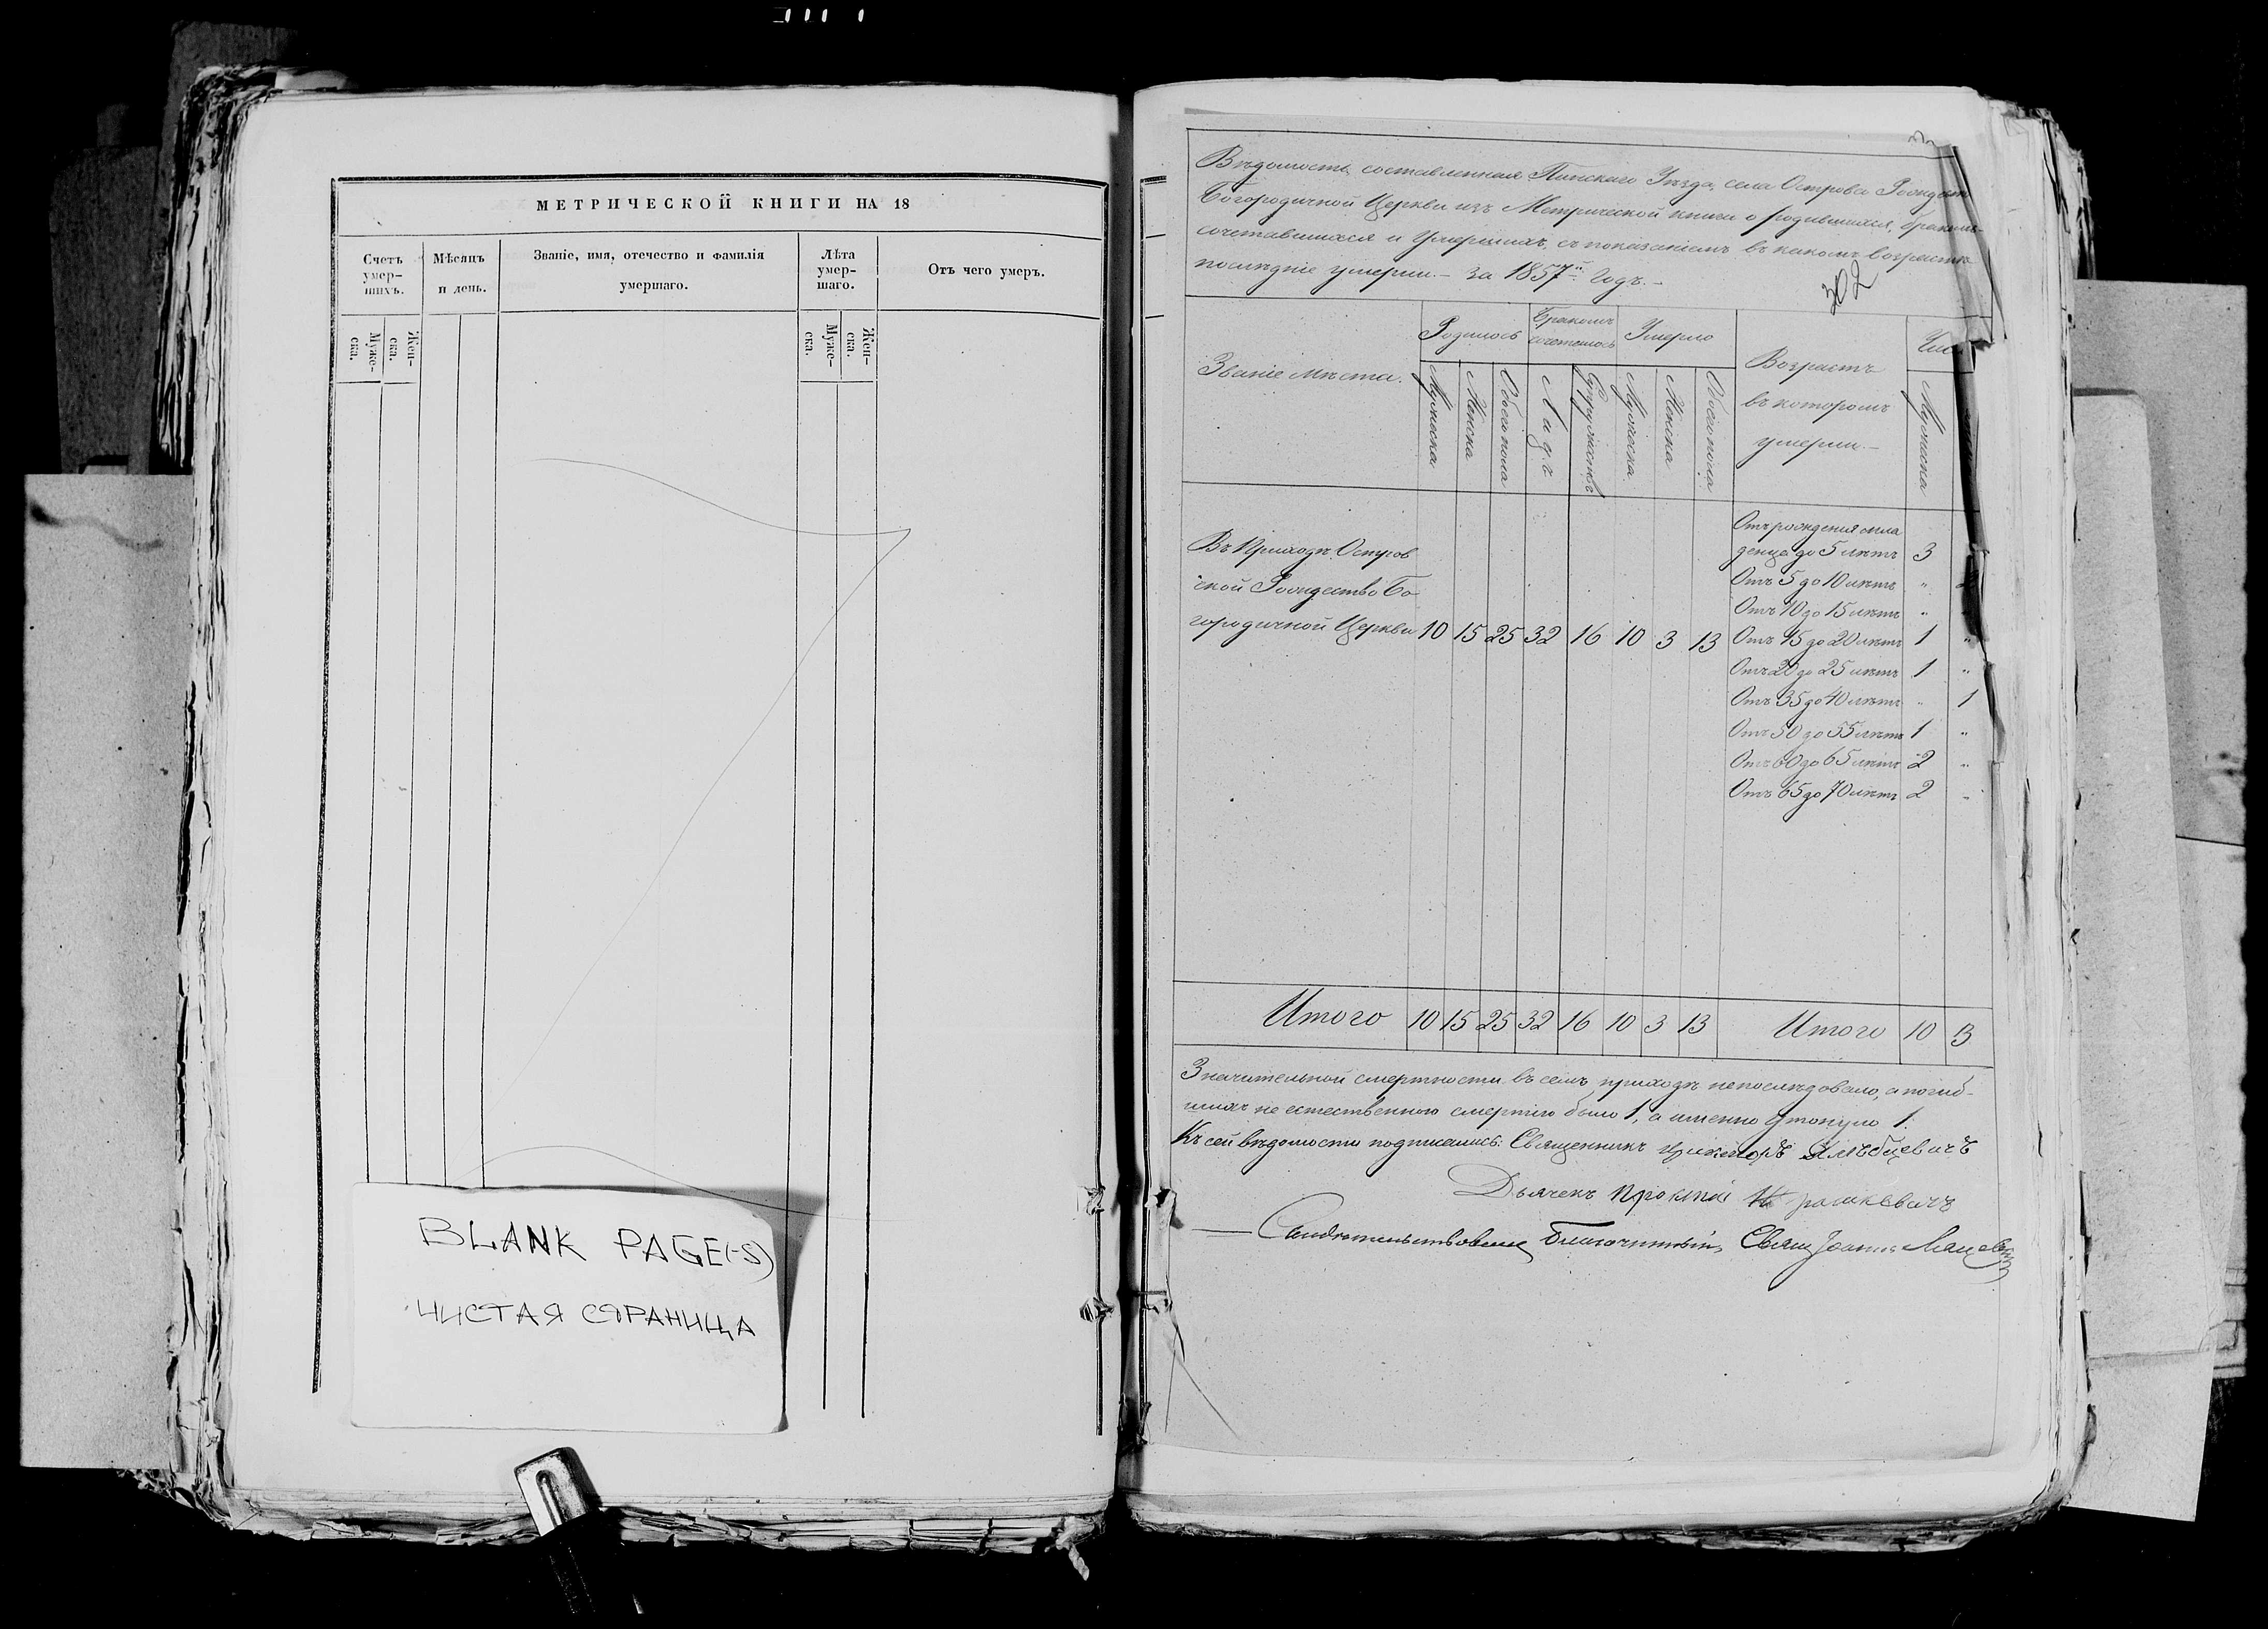 МЕТРИЧЕСКОЙ КНИГИ НА 18
Счетъ умер-шихъ.
Мѣсяцъ и день.
Званіе, имя, отечество и фамилія умершаго.
Лѣта умер-шаго.
Отъ чего умеръ.
Муже-ска.
Жен-ска.
Муже-ска.
Жен-ска.
BLANK PAGE(-S)
ЧИСТАЯ СТРАНИЦА
Вѣдомость, составленная Пинскаго Уѣзда, села Острова Рождест
Богородичной Церкви изъ Метрической книги о родившихся, бракомъ
сочетавшихся и Умершихъ, съ показаніемъ въ какомъ возрастѣ
послѣдніе умерли. – за 1857й Годъ. –
302
Званіе мѣста.
Родилось
Бракомъ сочеталось
Умерло
Возрастъ
въ которомъ
умерли. –
Чис
Мужеска
Женска
Обоего пола
Лицъ
Супружествъ
Мужеска
Женска
Обоего пола
Мужеска
Въ Приходѣ Остров
ской Рождество Бо
городичной Церкви 10 15 25 32 16 10 3 13
Отъ рожденія мла
денца до 5 лѣтъ 3
Отъ 5 до 10 лѣтъ „
Отъ 10 до 15 лѣтъ „
Отъ 15 до 20 лѣтъ 1 „
Отъ 20 до 25 лѣтъ 1 „
Отъ 35 до 40 лѣтъ „ 1
Отъ 50 до 55 лѣтъ 1 „
Отъ 60 до 65 лѣтъ 2 „
Отъ 65 до 70 лѣтъ 2 „
Итого 10 15 25 32 16 10 3 13 Итого 10 3
Значительной смертности въ семъ приходѣ непослѣдовало, а погиб-
шихъ не естественною смертію было 1, а именно утонуло 1.
Къ сей вѣдомости подписались: Священникъ
Дьячекъ
Свидѣтельствовалъ Благочинный Свящ Іоаннъ